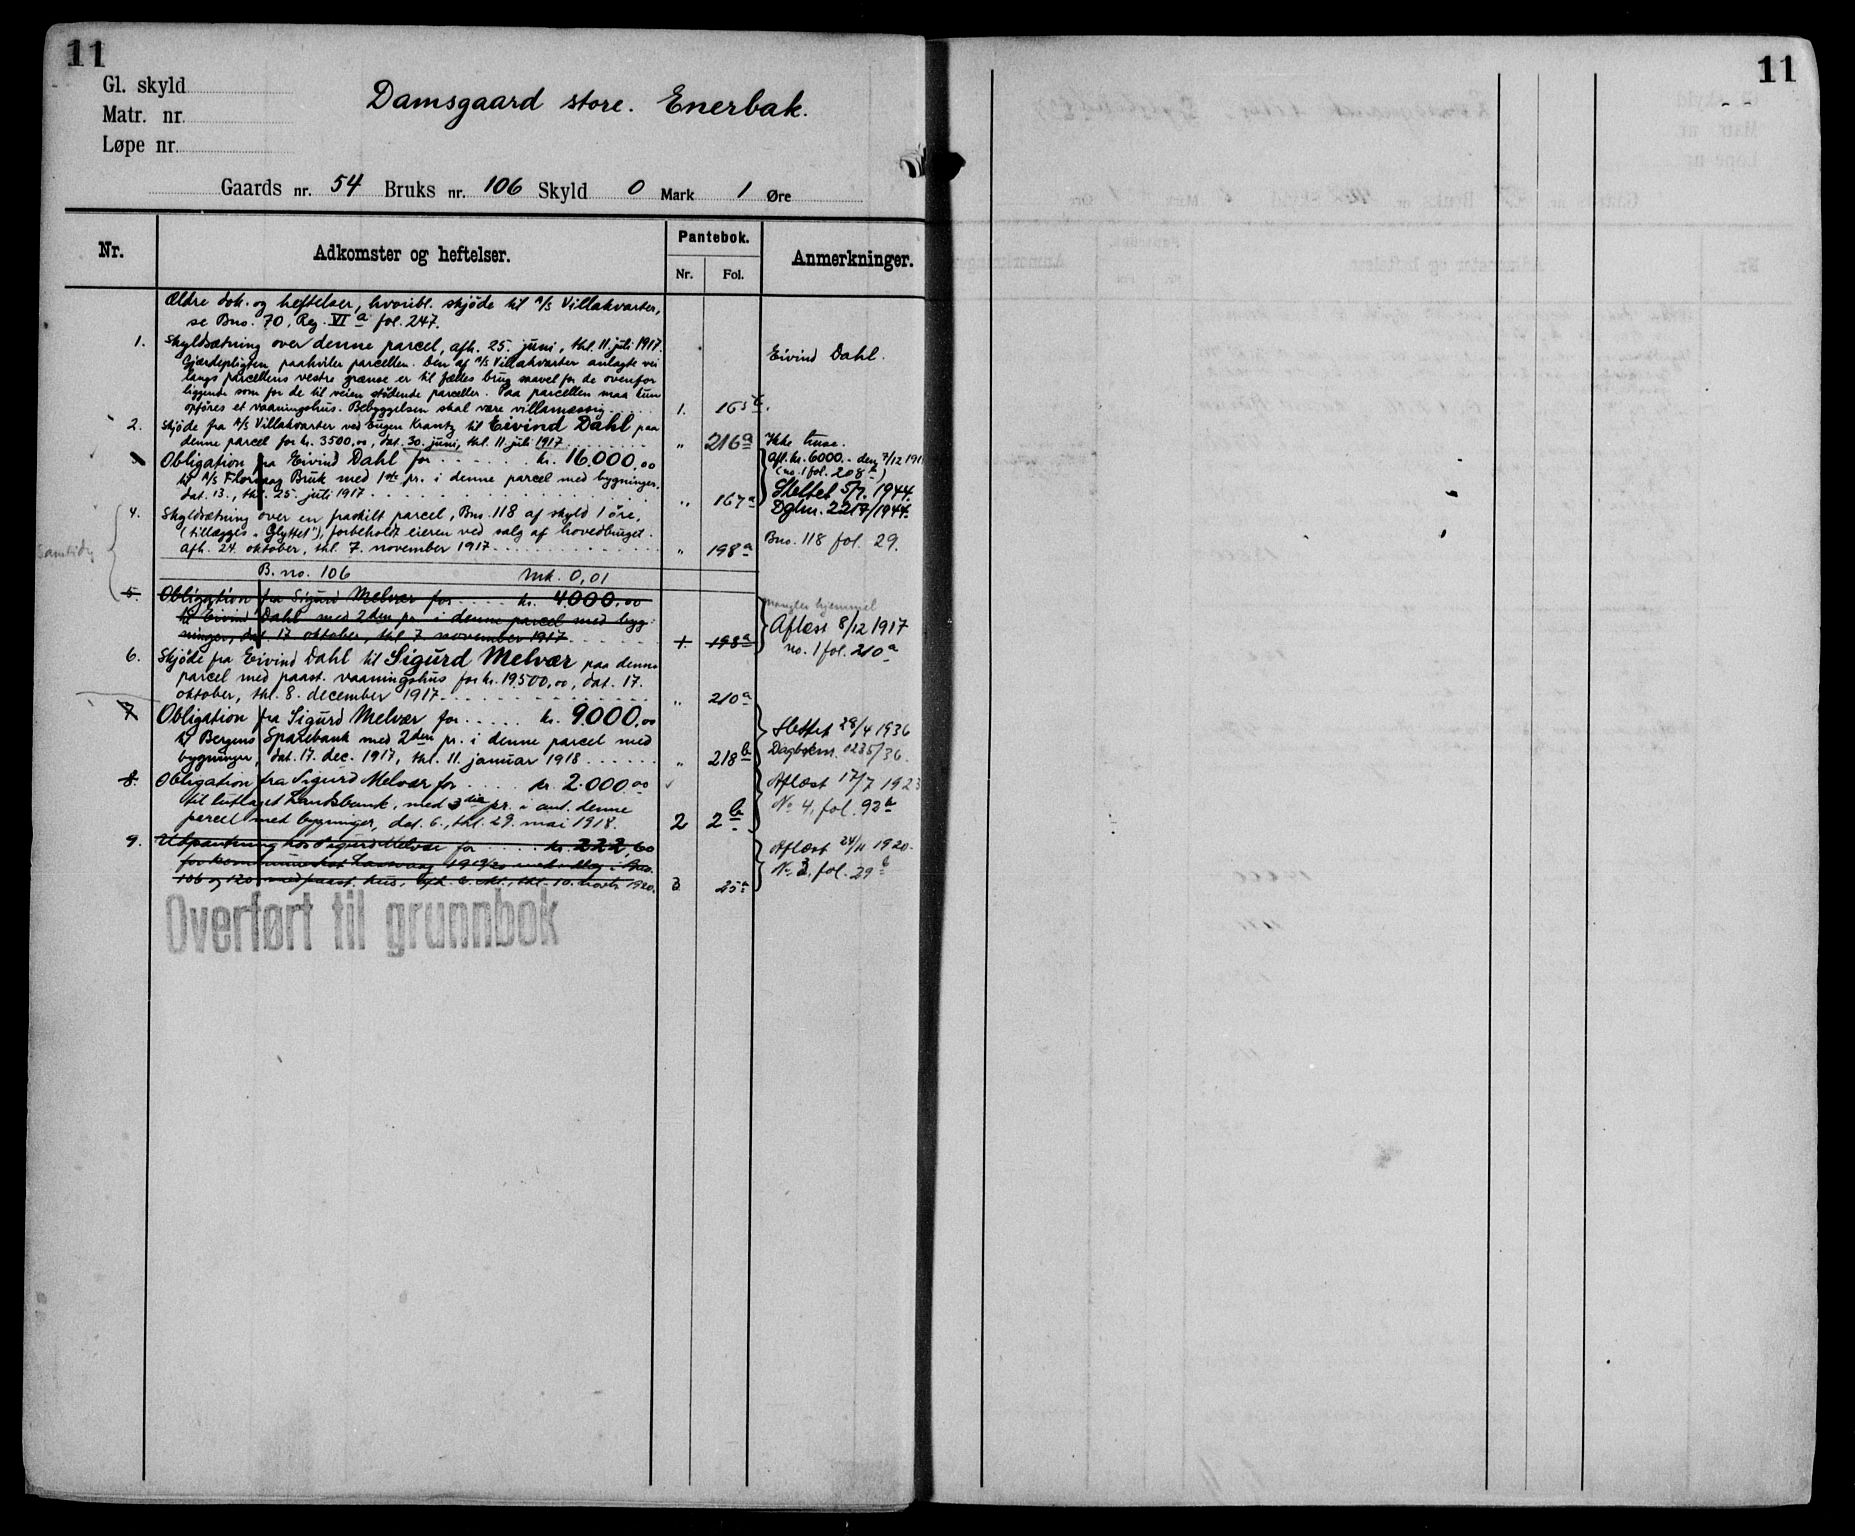 11
Gl. skyld
Matr. nr.
Løpe nr.
Damsgaard store. Enerbak.
Gaards nr. 54 Bruks nr. 106 Skyld 0 Mark 1 Øre
Nr.
Adkomster og heftelser.
Pantebok.
Nr. Fol.
Anmerkninger.
Ældre dok. og heftelser, hvoribl. skjöde til A/S Villakvarter,
se Bno. 70, Reg. VI a fol. 247.
1. Skyldsætning over denne parcel, afh. 25. juni, thl. 11. juli 1917.
Gjerdepligten paahviler parcellen. Den af A/S Villakvarter anlagte vei
langs parcellens vestre grænse er til fælles brug saavel for de ovenfor
liggende som for de til veien stödende parceller. Paa parcellen maa kun
opföres et vaaningshus. Bebyggelsen skal være villamæssig. 1. 165 b.
Eivind Dahl.
2. Skjöde fra A/S Villakvarter ved Eugen Krantz til Eivind Dahl paa
denne parcel for kr. 3500,00, dat. 30. juni, thl. 11. juli 1917. " 216 a
Ikke truse.
3. Obligation fra Eivind Dahl for kr. 16.000,00
til A/S Florvaag Bruk med 1ste pr. i denne parcel med bygninger,
dat. 13., thl. 25. juli 1917. " 167 a
Afl. kr. 6000.- den 7/12 191
(no. 1 fol. 208 a)
Slettet 5/7. 1944.
Dgbn. 2217/1944.
4. Skyldsætning over en fraskilt parcel, Bno. 118 af skyld 1 öre,
(tillægges "Glyttet"), forbeholdt eieren ved salg af hovedbruget.
afh. 24. oktober, thl. 7. november 1917. " 198 a
Bno. 118 fol. 29.
Samtidig
B. no. 106 Mk. 0,01
5. Obligation fra Sigurd Melvær for kr. 4000,00
til Eivind Dahl med 2den pr. i denne parcel med byg-
ninger, dat. 17. oktober, thl. 7. november 1917. 1. 198 a
mangler hjemmel
Aflæst 8/12 1917
no. 1 fol. 210 a
6. Skjöde fra Eivind Dahl til Sigurd Melvær paa denne
parcel med paast. vaaningshus for kr. 19.500,00, dat. 17.
oktober, thl. 8. december 1917. " 210 a
7. Obligation fra Sigurd Melvær for kr. 9000,00
til Bergens Sparebank med 2den pr. i denne parcel med
bygninger, dat. 17. dec. 1917, thl. 11. januar 1918. " 218 b
Slettet 28/4 1936
Dagboknr. 1235/36.
8. Obligation fra Sigurd Melvær for kr. 2.000,00
til Landsbank, med 3die pr. i ant. denne
parcel med bygninger, dat. 6., thl. 29. mai 1918. 2 2 b
Aflæst 17/7 1923
No 4, fol. 92 b
9. Utpantning hos Sigurd Melvær for kr. 222,60
for kommuneskat Laxevaag 1919/20 med utlæg i Bno.
106 og 120 med paast. hus, thl. 10. 1920. 3 25 a
Aflæst 24/11 1920.
No. 3, fol. 29 b
Overført til grunnbok
11